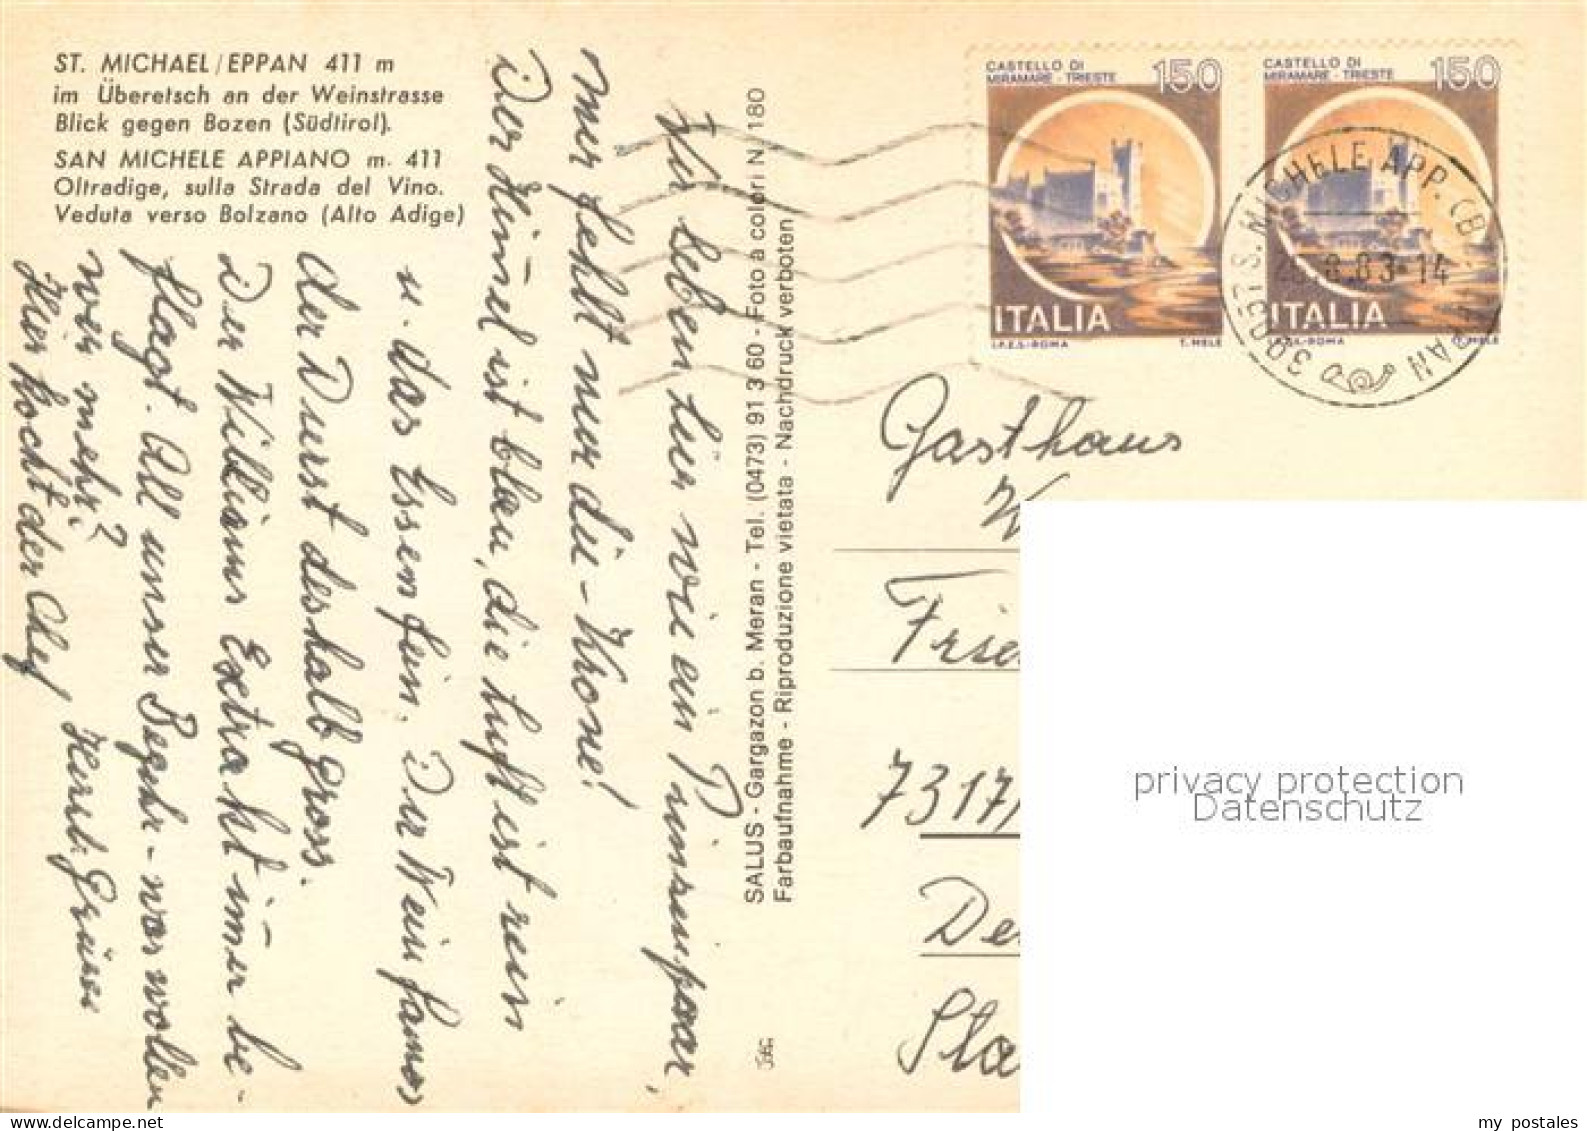 ST. MICHAEL/EPPAN 411 m
im Überetsch an der Weinstrasse
Blick gegen Bozen (Südtirol).
SAN MICHELE APPIANO m. 411
Oltradige, sulla Strada del Vino.
Veduta verso Bolzano (Alto Adige)
Wir leben hier wie ein Prinzenpaar,
mir fehlt nur die - Krone!
Der Himmel ist blau, die Luft ist rein
u. das Essen fein. Der Wein famos
der Durst deshalb gross.
Der Williams Extrakt immer be-
flagt. All unser Begehr - was wollen
wir mehr?
Hier kocht der Chef, Herzl. Grüsse
SALUS - Gargazon b. Meran - Tel. (0473) 91 3 60 - Foto a colori N. 180
Farbaufnahme - Riproduzione vietata - Nachdruck verboten
CASTELLO DI
MIRAMARE - TRIESTE
150
ITALIA
I.P.Z.S.-ROMA T. MELE
CASTELLO DI
MIRAMARE - TRIESTE
150
ITALIA
I.P.Z.S.-ROMA T. MELE
39057 S. MICHELE APP. (BZ) EPPAN
8.83-14
Gasthaus
W
Frie
7317
De
Sta
privacy protection
Datenschutz
my postales